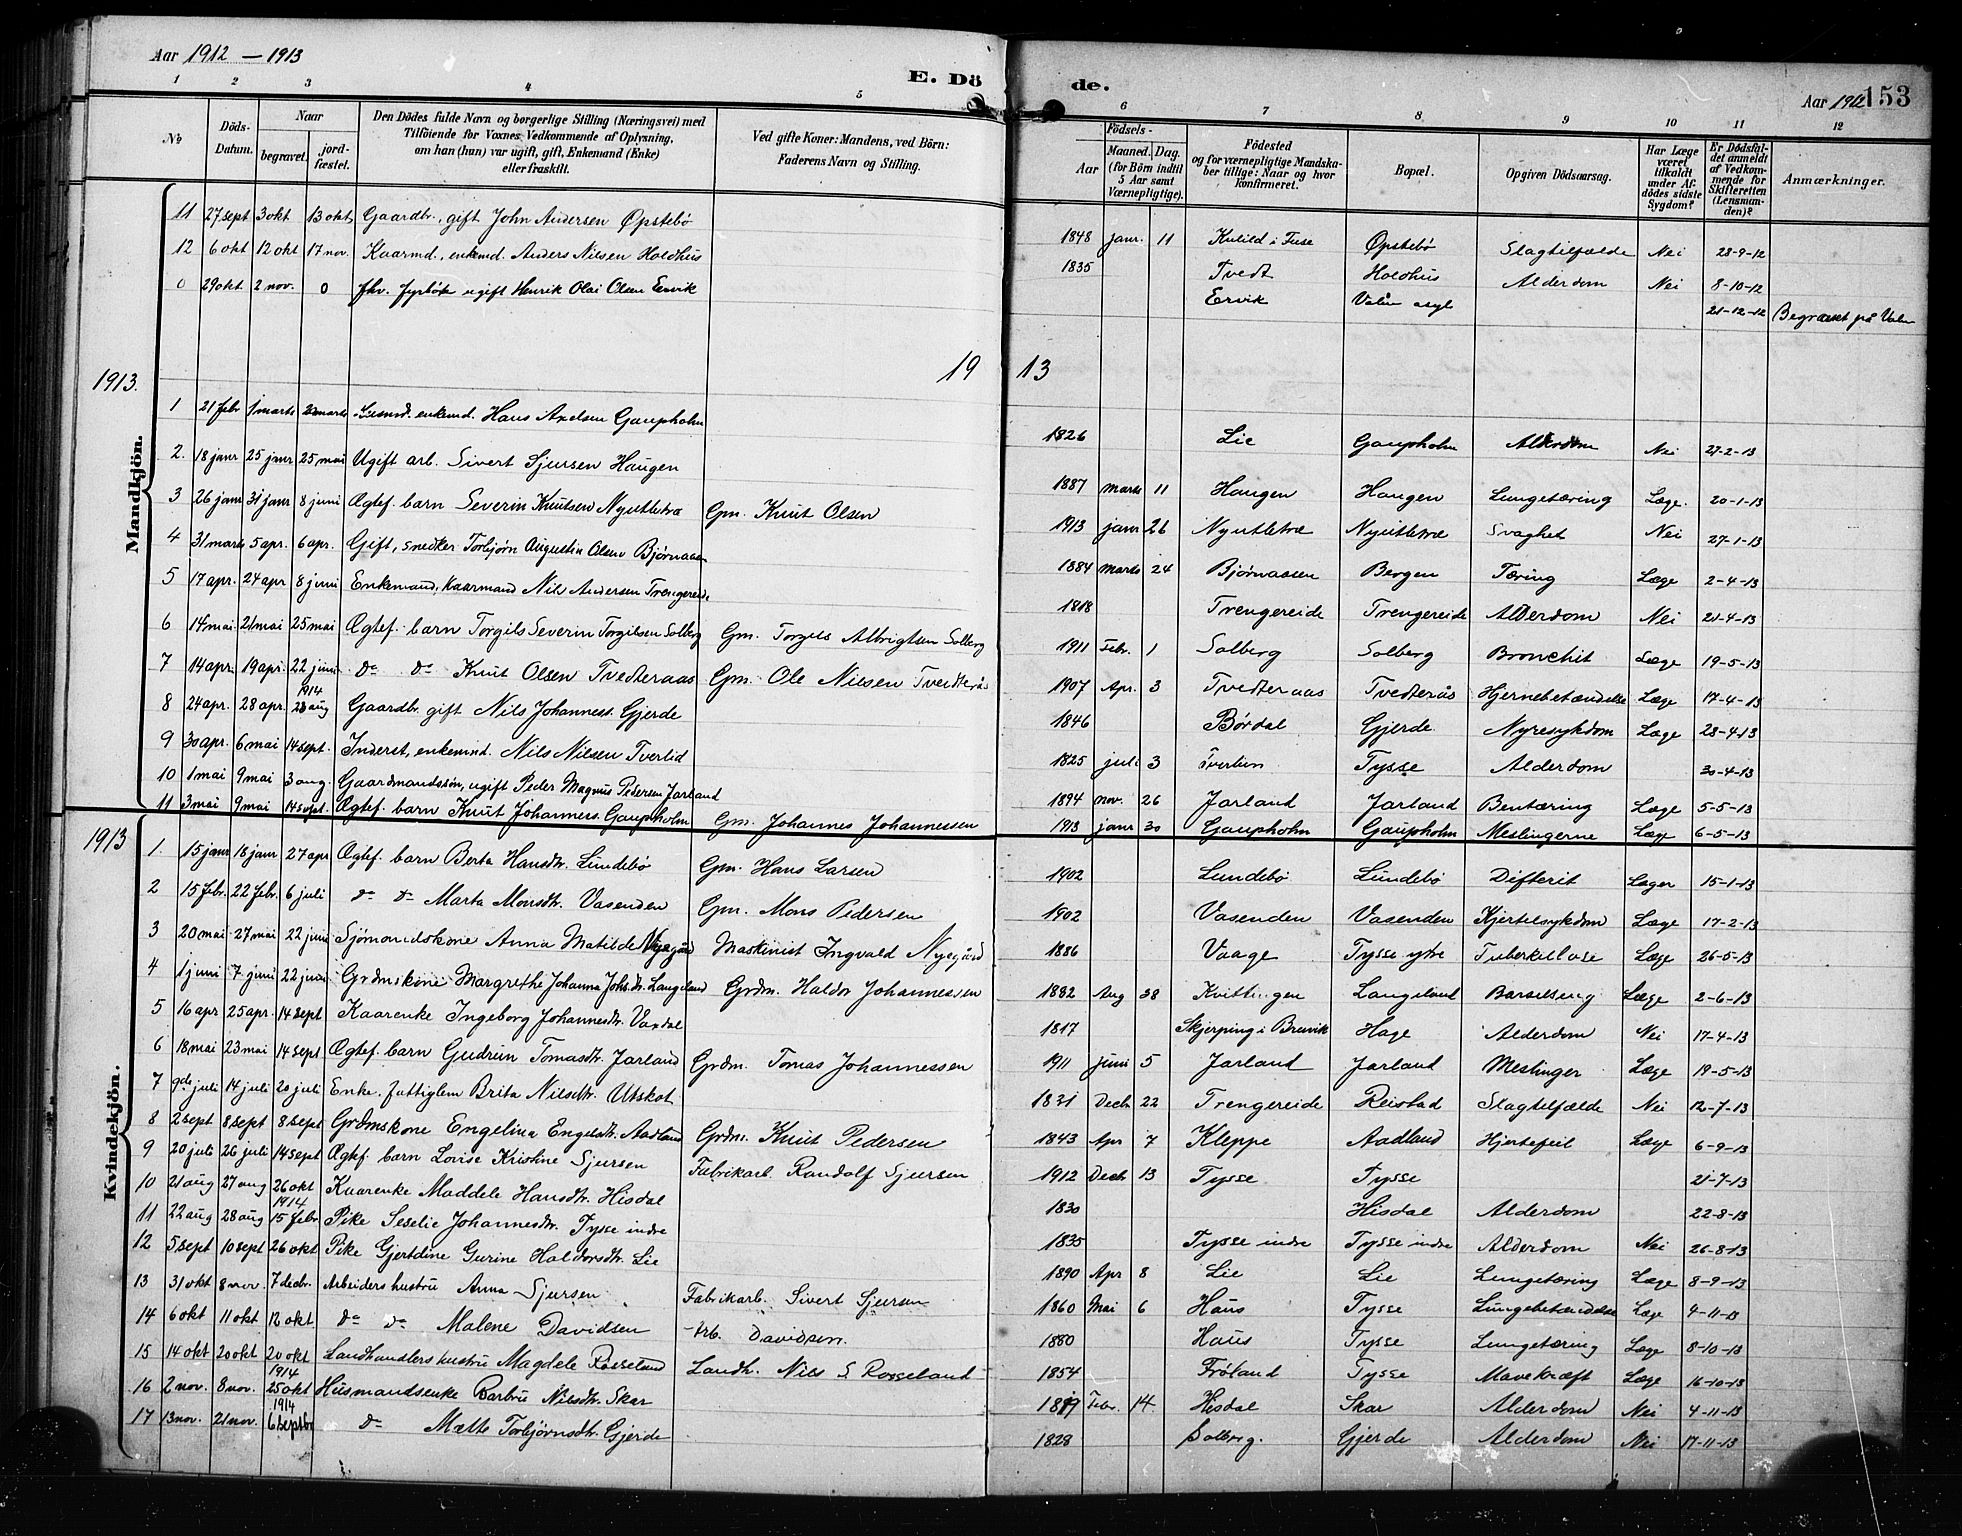 Aar 1912 – 1913
E. Dö de.
Aar 1912 153
1 2 3 4 5 6 7 8 9 10 11 12
No
Döds-Datum.
Naar begravet. jord-fæstet.
Den Dödes fulde Navn og borgerlige Stilling (Næringsvei) med
Tilföiende for Voxnes Vedkommende af Oplysning,
om han (hun) var ugift, gift, Enkemand (Enke)
eller fraskilt.
Ved gifte Koner: Mandens, ved Börn:
Faderens Navn og Stilling.
Födsels-
Aar Maaned. Dag.
(for Börn indtil 5 Aar samt Værnepligtige).
Födested
og for værnepligtige Mandskaber tillige: Naar og hvor konfirmeret.
Bopæl.
Opgiven Dödsaarsag.
Har Læge været tilkaldt under Afdödes sidste Sygdom?
Er Dödsfaldet anmeldt af Vedkommende for Skifteretten (Lensmanden)?
Anmærkninger.
11 27 sept 3 okt 13 okt Gaardbr., gift John Andersen Øpstebø 1848 janr. 11 Kulild i Fuse Øpstebø Slagtilfælde Nei 28-9-12
12 6 okt 12 okt 17 nov. Kaarmd., enkemd. Anders Nilsen Holdhus 1835 Tvedt Holdhus Alderdom Nei 8-10-12
0 29 okt 2 nov. 0 fhv. fyrbøt ugift Henrik Olai Olsen Ervik Ervik Valen asyl 21-12-12 Begravet på Valen
1913. 19 13
Mandkjön.
1 21 febr 1 marts marts enkemd. Hans Axelsen Gaupholm 1826 Lie Gaupholm Alderdom Nei 27-2-13
2. 18 janr 25 janr 25 mai Ugift arb. Sivert Sjursen Haugen 1887 marts 11 Haugen Haugen Lungetæring Læge. 20-1-13
3 26 janr 31 janr 8 juni Ægtef. barn Severin Knutsen Nyutletræ Gm. Knut Olsen 1913 janr 26 Nyutletræ Nyutletræ Svaghet Nei 27-1-13
4 31 marts 5 apr. 6 apr. Gift, snedker Torbjørn Augustin Olsen Bjørnaasen 1884 marts 24 Bjørnaasen Bergen Tæring Læge 2-4-13
5 17 apr. 24 apr 8 juni Enkemand, Kaarmand Nils Andersen Trengereide 1818 Trengereide Trengereide Alderdom Nei 21-4-13
6 14 mai 21 mai 25 mai Ægtef. barn Torgils Severin Torgilsen Solberg Gm. Torgils Albrigtsen Solberg 1911 Febr. 1 Solberg Solberg Bronchit Læge 19-5-13
7 14 apr. 19 apr. 22 juni do do Knut Olsen Tvedteraas Gm. Ole Nilsen Tvedterås 1907 Apr. 3 Tvedteraas Tvedterås Hjernebetændelse Læge 17-4-13
8 24 apr. 28 apr. 1914 23 aug Gaardbr. gift Nils Johanness. Gjerde 1846 Børdal Gjerde Nyresykdom Læge 28-4-13
9 30 apr. 6 mai 14 sept. Inderst, enkemnd. Nils Nilsen Tverlid 1825 juli 3 Tverlien Tysse Alderdom 30-4-13
10 1 mai 9 mai 3 aug. Gaardmandssøn, ugift Peder Magnus Pedersen Jarland 1894 nov. 26 Jarland Jarland Bentæring Læge 5-5-13
11 3 mai 9 mai 14 sept. Ægtef. barn Knut Johanness. Gaupholm Gm. Johannes Johannessen 1913 janr 30 Gaupholm Gaupholm Meslingerne Læge 6-5-13
1913
Kvindekjön.
1. 15 janr 18 janr 27 apr Ægtef. barn Berta Hansdtr. Lundebø Gm. Hans Larsen 1902 Lundebø Lundebø Difterit Læger 15-1-13
2 15 febr. 22 febr. 6 juli do do Marta Monsdtr. Vasenden Gm. Mons Pedersen 1902 Vasenden Vasenden Kjertelsykdom Læge 17-2-13
3 20 mai 27 mai 22 juni Sjømandskone Anna Matilde Nygård Maskinist Ingvald Nygård 1886 Vaage Tysse ytre Tuberkellose Læge 26-5-13
4 1 juni 7 juni 22 juni Grdmskone Margrethe Johanna Johs.dtr. Langeland Grdm. Haldor Johannessen 1882 Aug 28 Kvittingen Langeland Barselseng Læge 2-6-13
5 16 apr 25 apr. 14 sept Kaarenke Ingeborg Johannesdtr. Vaxdal 1817 Skjerping i Bruvik Hage Alderdom Nei 17-4-13
6 18 mai 23 mai 14 sept Ægtef. barn Gudrun Tomasdtr. Jarland Grdm. Tomas Johannessen 1911 juni 5 Jarland Jarland Meslinger Læge 19-5-13
7 9de juli 14 juli 20 juli Enke, fattiglem Brita Nilsdtr. Utskot 1831 Decbr 22 Trengereide Reistad Slagtilfælde Nei 12-7-13
8 2 sept 8 sept 8 sept Grdmskone Engelina Engelsdtr. Aadland Grdm. Knut Pedersen 1843 Apr 7 Kleppe Aadland Hjertefeil Læge 6-9-13
9 20 juli 26 juli 14 sept Ægtef. barn Lovise Kristine Sjursen Fabrikarb. Randolf Sjursen 1912 Decb 13 Tysse Tysse 21-7-13
10 21 aug 27 aug 26 okt Kaarenke Maddele Hansdtr. Hisdal 1830 Hisdal Alderdom 22-8-13
11 22 aug 28 aug 1914 15 febr Pike Seselie Johannesdtr. Tysse indre 1835 Tysse indre Tysse indre Alderdom Nei 26-8-13
12 5 sept 10 sept 26 okt Pike Gjertdine Gurine Haldorsdtr. Lie 1890 Apr 8 Lie Lie Lungetæring Læge 8-9-13
13 31 okt 8 nov. 7 decbr. Arbeiders hustru Anna Sjursen Fabrikarb. Sivert Sjursen 1860 Mai 6 Haus Tysse Lungebetændelse Læge 4-11-13
14 6 okt 11 okt 12 okt do do Malene Davidsen Arb. Davidsen. 1880 Haus Tysse Lungetæring Læge 8-10-13
15 14 okt 20 okt 20 okt Landhandlers hustru Magdele Rosseland Landh. Nils S Rosseland 1854 Frøland Tysse Mavekræft Læge 16-10-13
16 2 nov. 8 nov. 1914 25 okt Husmandsenke Barbru Nilsdtr. Skar 1819 Febr. 14 Hisdal Skar Alderdom Nei 4-11-13
17 13 nov. 21 nov. 1914 6 septbr do Mætte Torbjørnsdtr. Gjerde 1828 Solberg. Gjerde Alderdom Nei 17-11-13